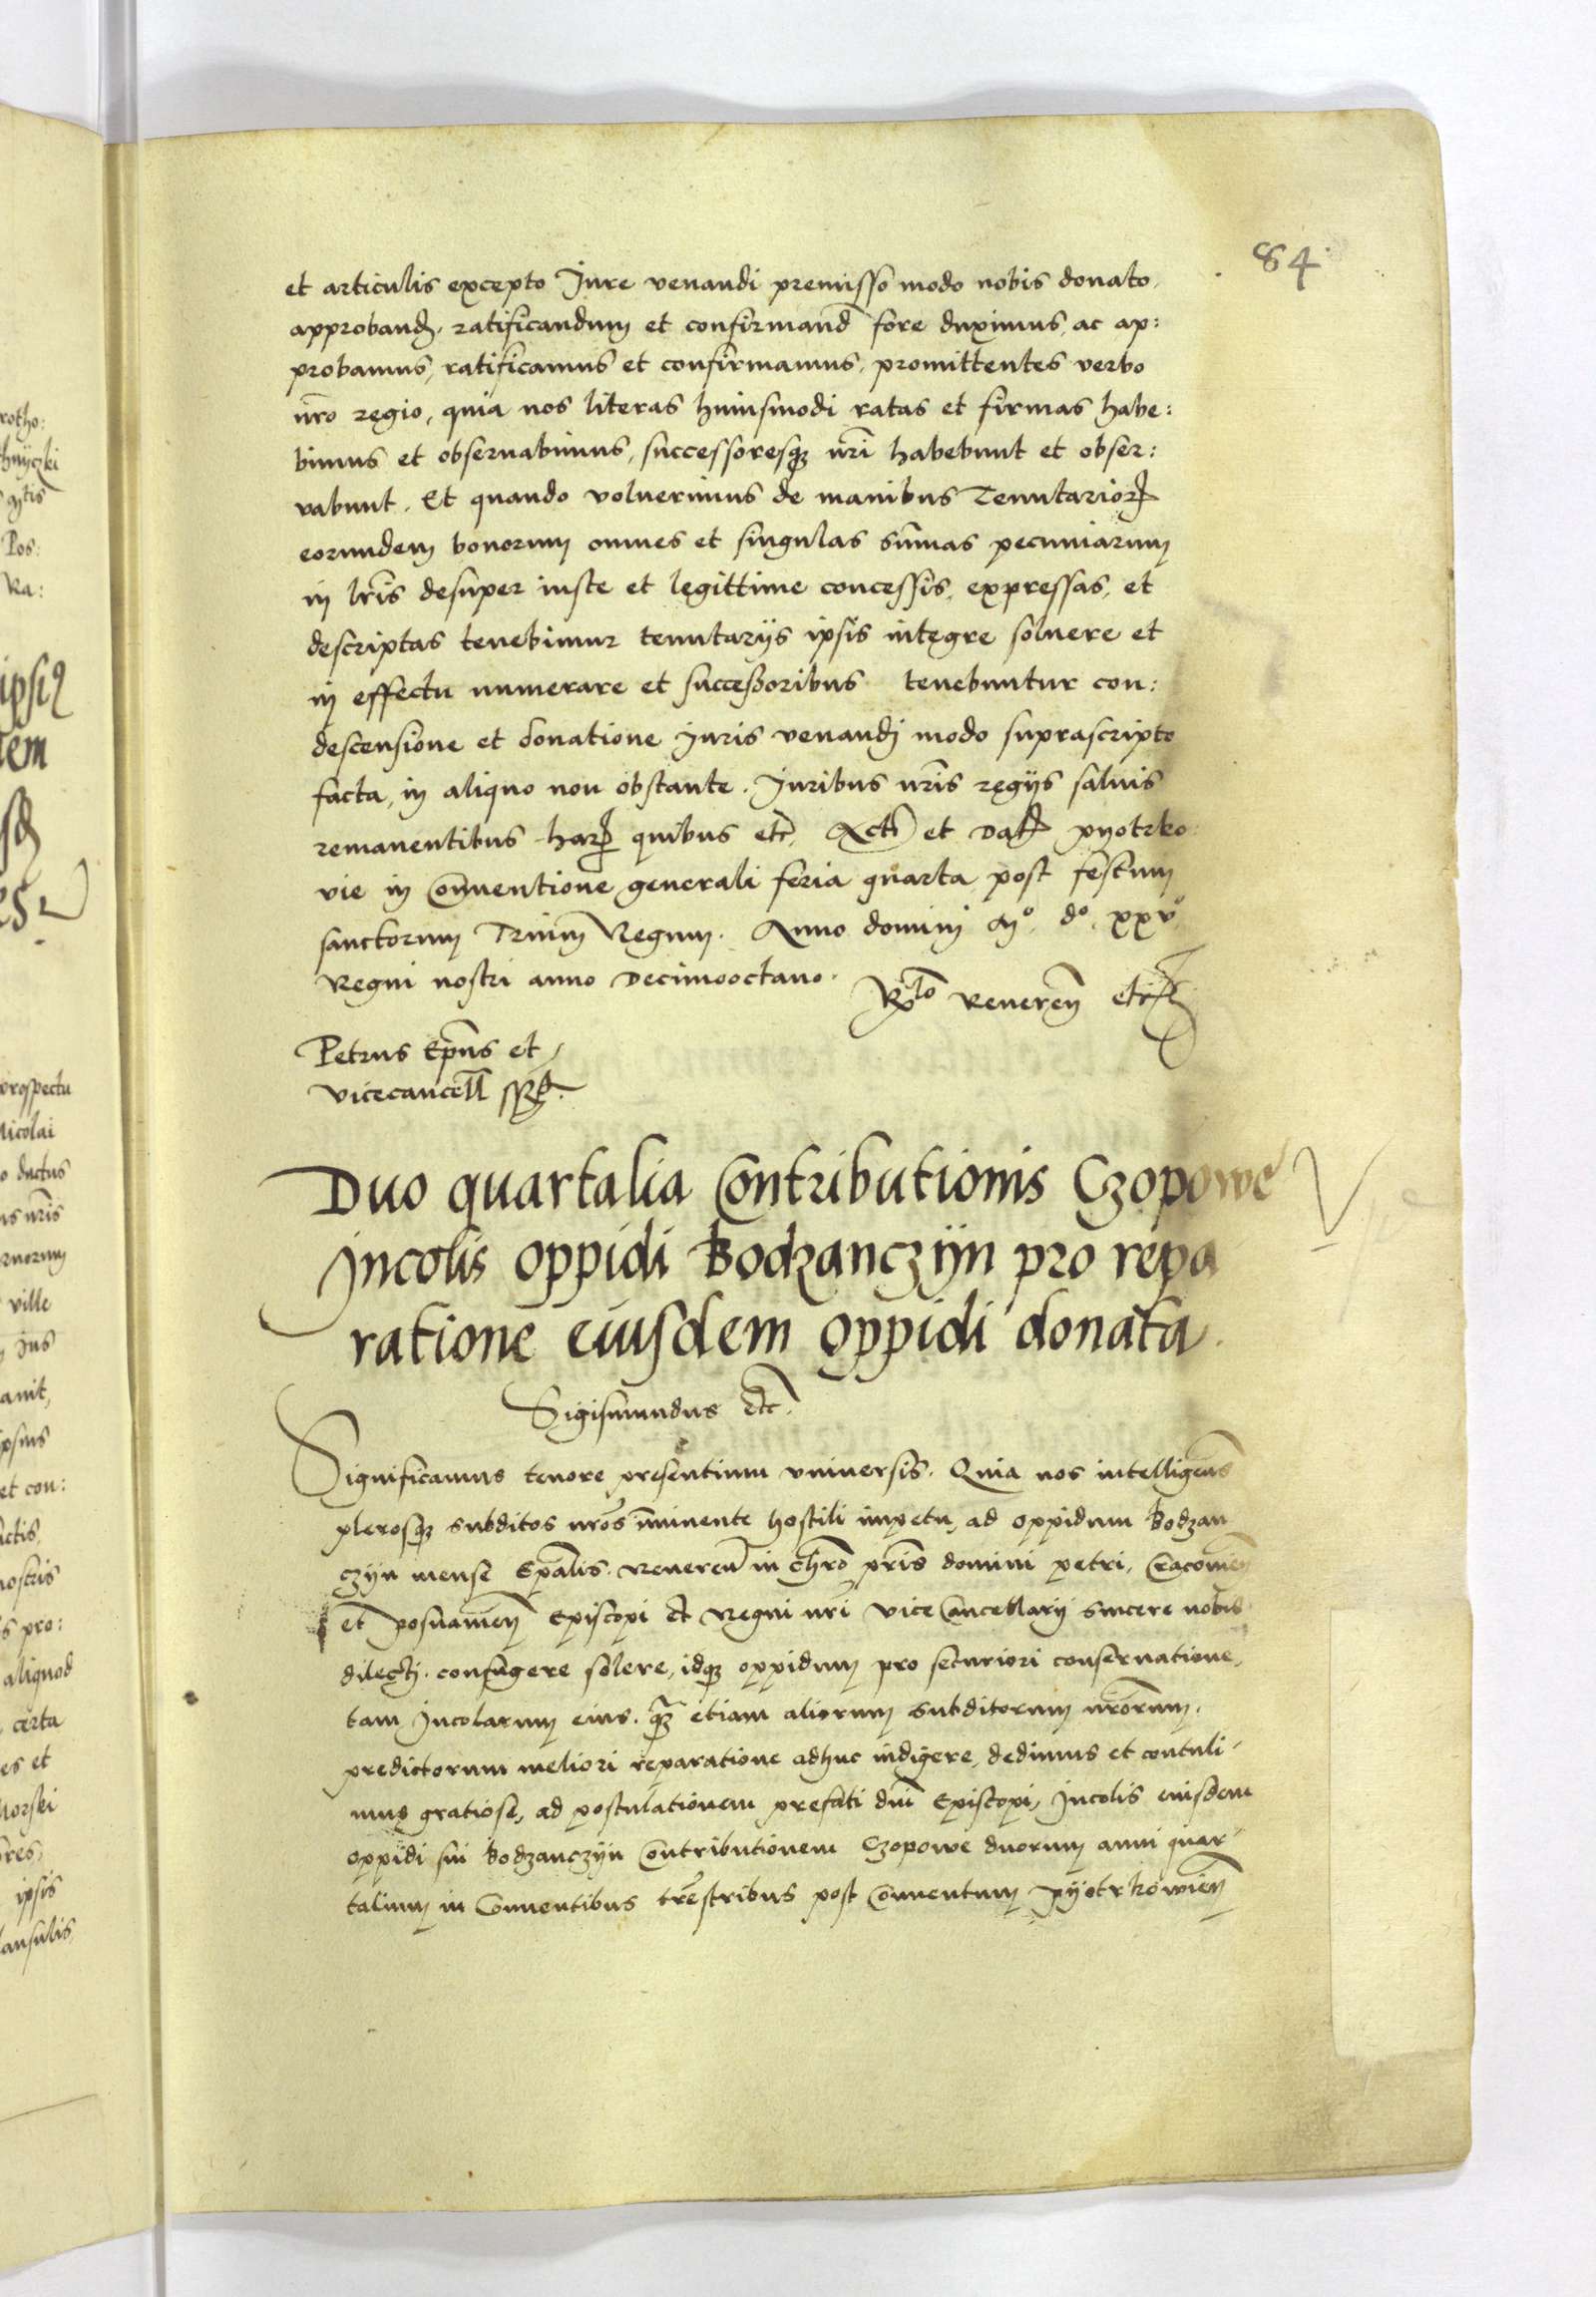 84
et articulis excepto Jure venandi premisso modo nobis donato,
approband. ratificandum et confirmand fore duximus, ac ap:
probamus, ratificamus et confirmamus, promittentes verbo
nro regio, quia nos literas huiusmodi ratas et firmas habe:
bimus et obseruabimus, successoresq nri habebunt et obser:
vabunt. Et quando voluerimus de manibus Tenutarior
eorundem bonorum omnes et singulas summas pecuniarum
in lris desuper iuste et legittime concessis, expressas, et
descriptas tenebimur tenutarijs ipsis integre soluere et
in effectu numerare et successoribus tenebuntur con:
descensione et donatione Juris venandi modo suprascripto
facta, in aliquo non obstante. Juribus nris regijs saluis
remanentibus har quibus etc. Act et Dat pyotrko:
vie in Conuentione generali feria quarta post festum
sanctorum Trium Regum. Anno domini Mº. dº. xxvº.
Regni nostri anno Decimooctauo.
Rlo Reueren etc
Petrus Epus et
vicecancell sst.
Duo quartalia Contributionis Czopowe
Jncolis oppidi Bodzanczijn pro repa
ratione eiusdem oppidi donata.
Sigismundus etc.
Significamus tenore presentium vniuersis. Quia nos intelligens
plerosq subditos nros imminente hostili impetu, ad oppidum Bodzan
czijn mense Epalis. Reueren in Chro pris domini petri, Cracouien
et posnamen Episcopi et Regni nri vice Cancellarij sincere nobis
dilecti. confugere solere, idq oppidum pro securiori conseruatione,
tam Jncolarum eius. q etiam aliorum subditorum nrorum.
predictorum meliori reparatione adhuc indigere, dedimus et contuli-
mus gratiose, ad postulationem prefati dni Episcopi, Jncolis eiusdem
oppidi sui Bodzanczijn Contributionem Czopowe duorum anni quar-
talium in Conuentibus trestribus post Conuentum pijotrkowien